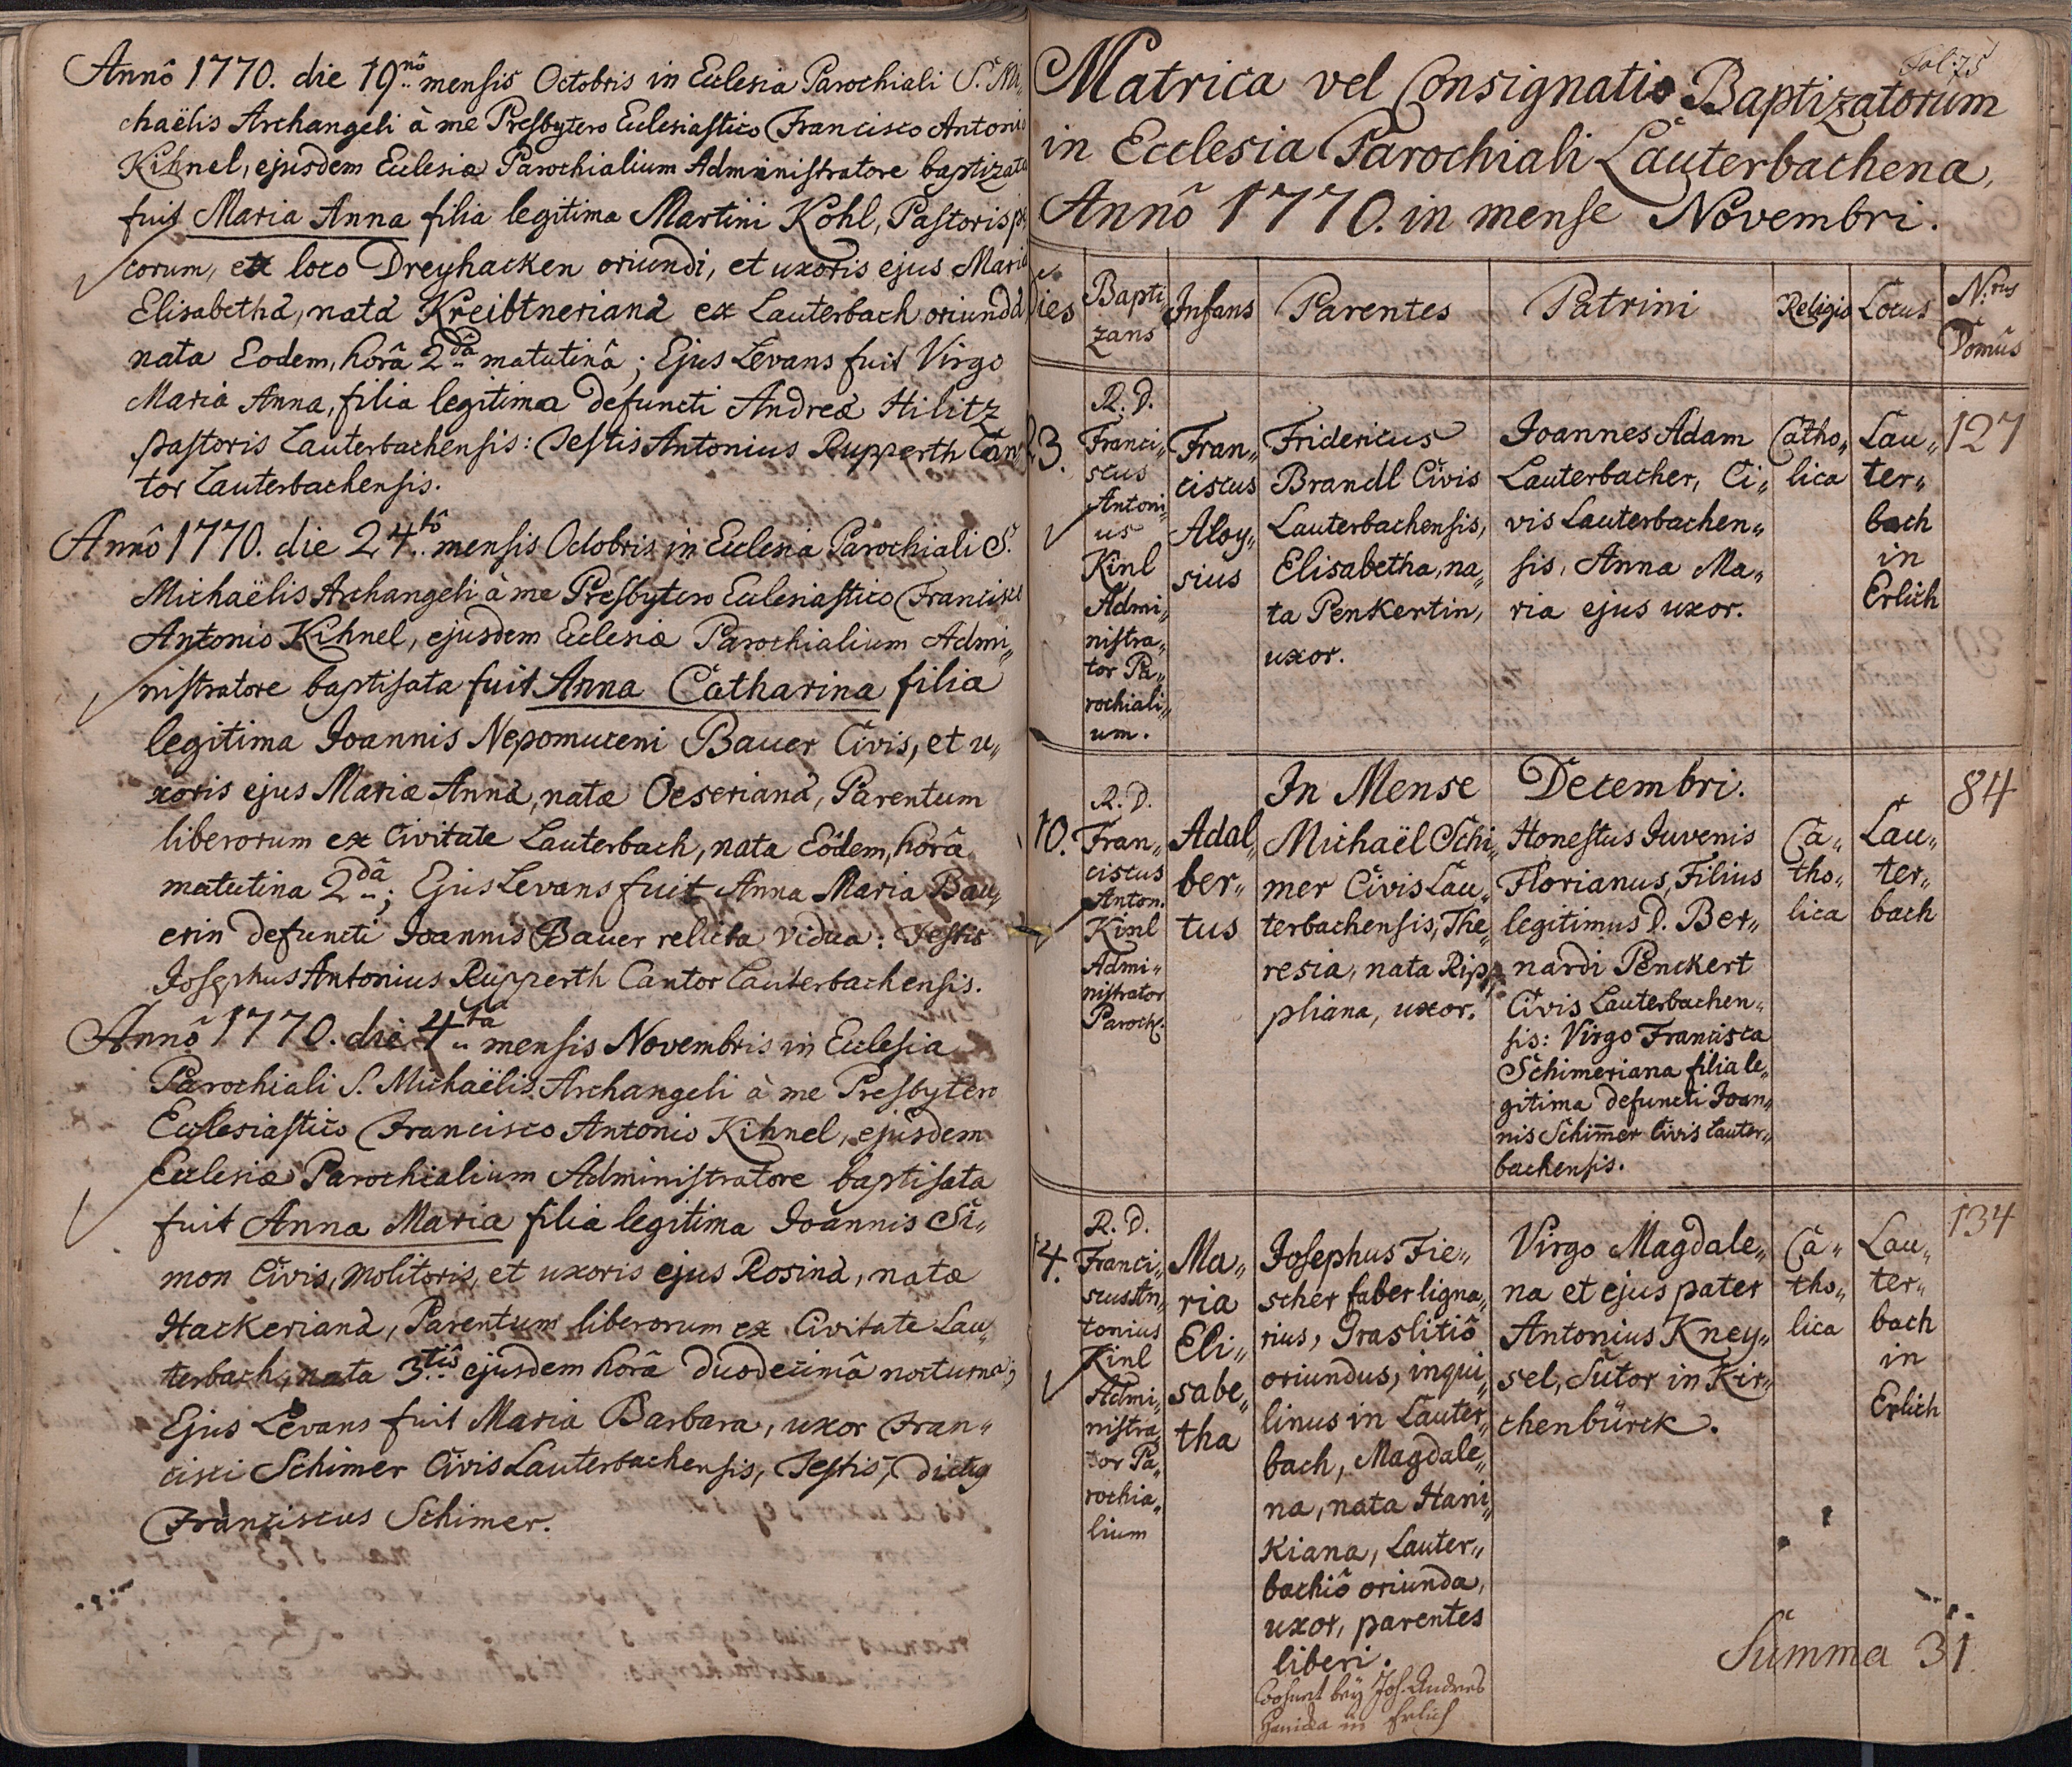 Annô 1770. die 19.nô mensis Octobris in Eclesia Parochiali S. Mi,
chaëlis Archangeli à me Presbytero Eclesiastico Francisco Antonio
Kihnel, ejusdem Eclesiæ Parochialium Administratore baptizata
fuit Maria Anna filia legitima Martini Kohl, Pastoris
corum, ex loco Dreyhacken oriundi, et uxoris ejus Maria
Elisabethâ, natâ Kreibtnerianâ ex Lauterbach oriundâ
nata Eodem, horâ 2.dâ matutinâ; Ejus Levans fuit Virgo
Maria Anna, filia legitima defuncti Andreæ Hilitz
pastoris Lauterbachensis: Testis Antonius Rupperth Can,
tor Lauterbachensis.
Annô 1770. die 24.tô mensis Octobris in Eclesia Parochiali S.
Michaëlis Archangeli à me Presbytero Eclesiastico Francisco
Antonio Kihnel, ejusdem Eclesiæ Parochialium Admi„
nistratore baptisata fuit Anna Catharina filia
legitima Joannis Nepomuceni Bauer Civis, et u„
xoris ejus Mariæ Annâ, natæ Oeserianâ, Parentum
liberorum ex Civitate Lauterbach, nata Eôdem, horâ
matutina 2.dâ; Ejus Levans fuit Anna Maria Bau„
erin defuncti Joannis Bauer relicta vidua: Testis
Josephus Antonius Rupperth Cantor Lauterbachensis.
Annô 1770. die 4.ta mensis Novembris in Eclesia
Parochiali S. Michaëlis Archangeli à me Presbytero
Ecclesiastico Francisco Antonio Kihnel, ejusdem
Eclesiæ Parochialium Administratore baptisata
fuit Anna Maria filia legitima Joannis Si„
mon Civis, Molitoris, et uxoris ejus Rosinâ, natæ
Hackerianâ, Parentum liberorum ex Civitate Lau„
terbach, nata 3.tiâ ejusdem horâ duodecimâ nocturna;
Ejus Levans fuit Maria Barbara, uxor Fran„
cisci Schimer Civis Lauterbachensis, Testis, dictq
Franciscus Schimer.
Fol: 75
Matrica vel Consignatio Baptizatorum
in Ecclesia Parochiali Lauterbachena,
Annô 1770. in mense Novembri.
Dies
Bapti„
zans
Infans
Parentes
Patrini
Religio
Locus
N:rus
Domûs
23.
R. D.
Franci„
scus
Antoni„
us
Kinl
Admi„
nistra„
tor Pa„
rochiali„
um.
Fran„
ciscus
Aloy„
sius
Fridericus
Brandl Civis
Lauterbachensis,
Elisabetha, na„
ta Penkertin,
uxor.
Joannes Adam
Lauterbacher, Ci„
vis Lauterbachen„
sis, Anna Ma„
ria ejus uxor.
Catho„
lica
Lau„
ter„
bach
in
Erlich
127
In Mense Decembri.
10.
R. D.
Fran„
ciscus
Anton.
Kinl
Admi„
nistrator
Paroch:
Adal„
ber„
tus
Michaël Schi„
mer Civis Lau„
terbachensis, The„
resia, nata Rip„
pliana, uxor.
Honestus Juvenis
Florianus, Filius
legitimus D. Ber„
nardi Penckert
Civis Lauterbachen„
sis: Virgo Francisca
Schimeriana filia le„
gitima defuncti Joan„
nis Schimer Civis Lauter„
bachensis.
Ca„
tho„
lica
Lau„
ter„
bach
84
14.
R. D.
Franci„
scus An„
tonius
Kinl
Admi„
nistra
tor Pa„
rochia„
lium
Ma„
ria
Eli„
sabe„
tha
Josephus Fie„
scher faber ligna„
rius, Graslitiô
oriundus, inqui„
linus in Lauter„
bach, Magdale„
na, nata Hani„
kiana, Lauter„
bachiô oriunda,
uxor, parentes
liberi.
Wohnet bey Joh. Andres
Hanicka in Erlich
Virgo Magdale„
na et ejus pater
Antonius Kney„
sel, Sutor in Kir„
chenbürck.
Ca„
tho„
lica
Lau„
ter„
bach
in
Erlich
134
Summa 31